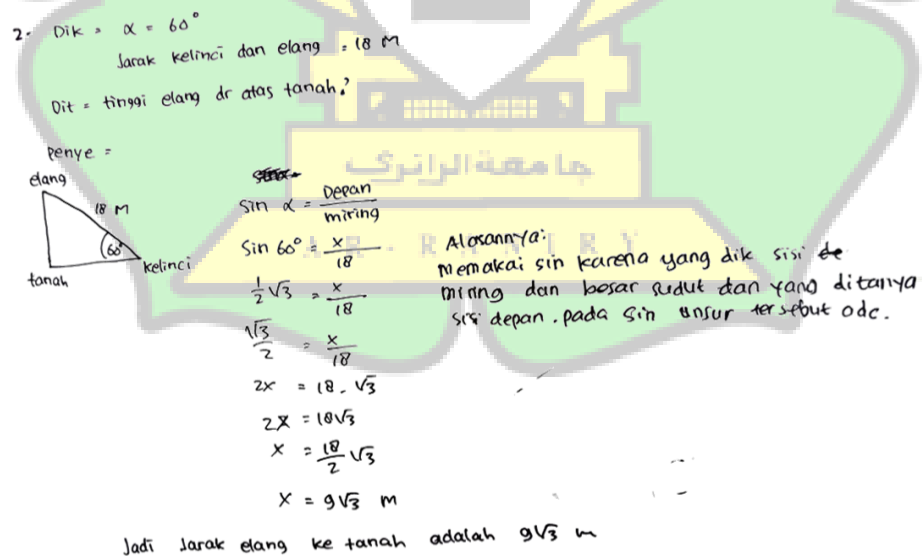 2. Dik = α = 60°
Jarak kelinci dan elang = 18 M
Dit = tinggi elang dr atas tanah?
Penye =
elang
18 M
60°
kelinci
tanah
sin α = Depan / miring
sin 60° = x / 18
1/2 √3 = x / 18
√3 / 2 = x / 18
2x = 18 . √3
2x = 18√3
x = 18/2 √3
x = 9√3 m
Alasannya:
memakai sin karena yang dik sisi
miring dan besar sudut dan yang ditanya
sisi depan. pada sin unsur tersebut ada.
Jadi Jarak elang ke tanah adalah 9√3 m
جامعة الرانري
A R - R A N I R Y